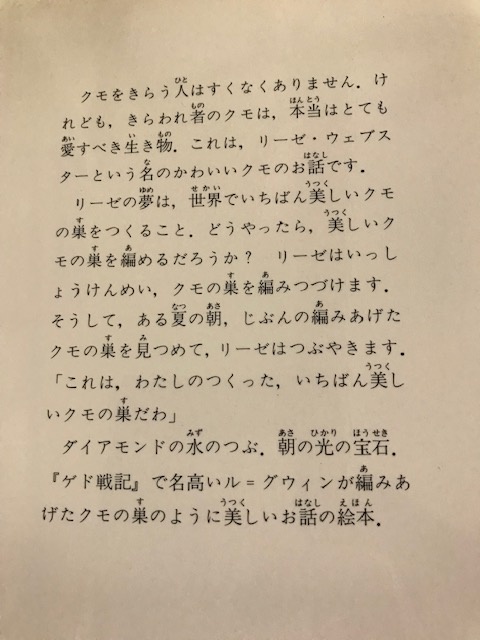 クモをきらう人はすくなくありません．け
れども，きらわれ者のクモは，本当はとても
愛すべき生き物．これは，リーゼ・ウェブス
ターという名のかわいいクモのお話です．
リーゼの夢は，世界でいちばん美しいクモ
の巣をつくること．どうやったら，美しいク
モの巣を編めるだろうか？　リーゼはいっし
ょうけんめい，クモの巣を編みつづけます．
そうして，ある夏の朝，じぶんの編みあげた
クモの巣を見つめて，リーゼはつぶやきます．
「これは，わたしのつくった，いちばん美し
いクモの巣だわ」
ダイアモンドの水のつぶ．朝の光の宝石．
『ゲド戦記』で名高いル＝グウィンが編みあ
げたクモの巣のように美しいお話の絵本．